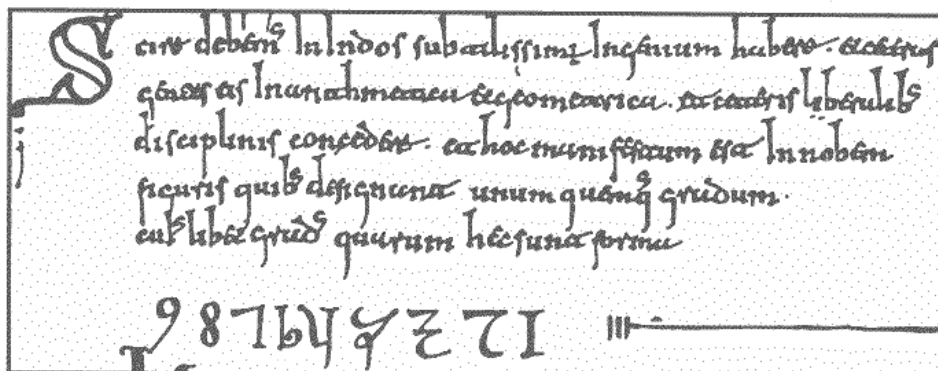 Scire debem' In Indos subtilissimi Ingenium habere. et ceteras
gentes eis In arithmetica et geometrica. et ceteris liberalib'
disciplinis concedere. et hoc manifestum est In nobem
figuris quib' designant unum quemq' gradum.
cuiuslibet grad' quarum hec sunt forma
9 8 7 6 5 4 3 2 1